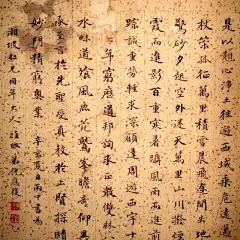 心淨土往遊西域乘危遠邁
杖策孤征萬里積雪晨飛途間失地
驚砂夕起空外迷天萬里山川撥煙
霞而進影百重寒暑躡霜雨而前
蹤誠重勞輕求深願達周遊西宇十有
年窮歷道邦詢求正教雙林八
水味道飡風鹿苑鷲峯瞻奇仰異
承至言於先聖受真教於上賢探賾
妙門精窮奧業 夏日雨中書為
湘坡仁兄同年大人雅 弟倪